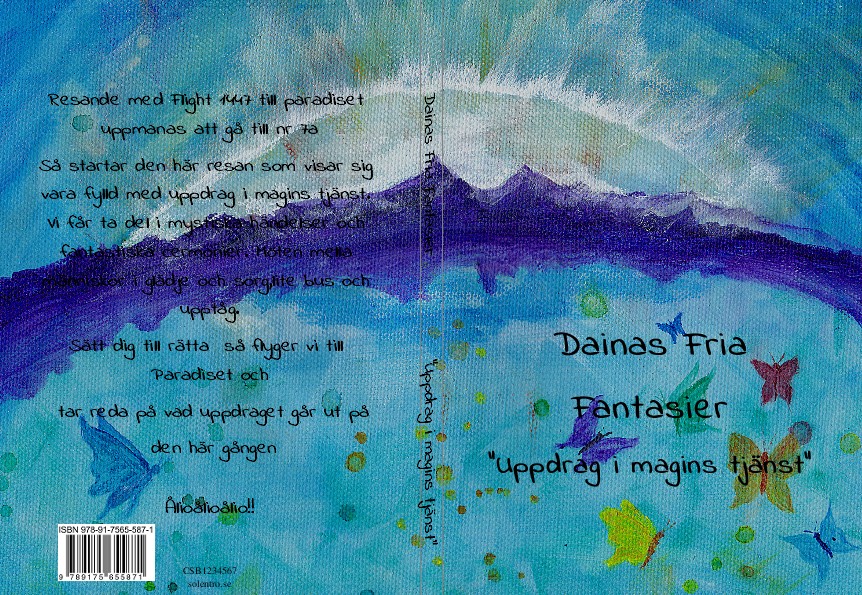 Resande med Flight 1447 till paradiset
uppmanas att gå till nr 7a
Så startar den här resan som visar sig
vara fylld med uppdrag i magins tjänst.
Vi får ta del i mystiska händelser och
fantastiska cermonier. Möten mella
människor i glädje och sorg,lite bus och
upptåg.
Sätt dig till rätta så flyger vi till
Paradiset och
tar reda på vad uppdraget går ut på
den här gången
Ålioålioålio!!
ISBN 978-91-7565-587-1
9 789175 655871
CSB1234567
solentro.se
Dainas Fria Fantasier
"Uppdrag i magins tjänst"
Dainas Fria
Fantasier
"Uppdrag i magins tjänst"